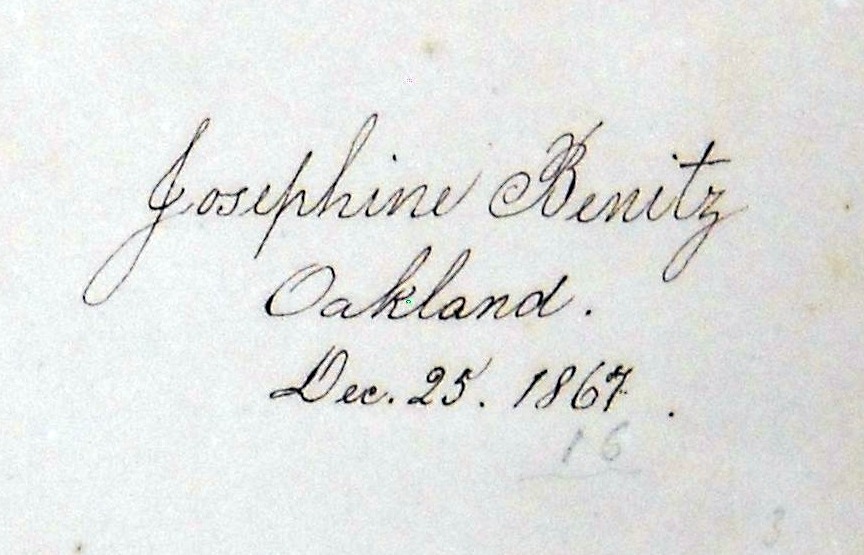 Josephine Benitz
Oakland.
Dec. 25. 1867.
16
3